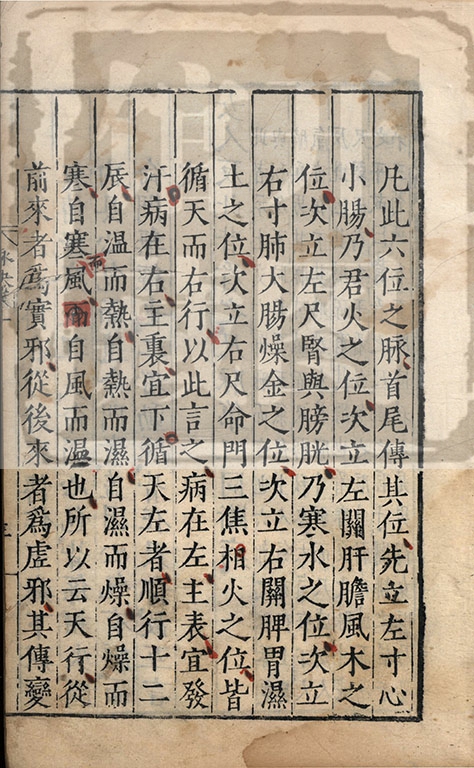 凡此六位之脉首尾傳其位先立左寸心
小腸乃君火之位次立左關肝膽風木之
位次立左尺腎與膀胱乃寒水之位次立
右寸肺大腸燥金之位次立右關脾胃濕
土之位次立右尺命門三焦相火之位皆
循天而右行以此言之病在左主表宜發
汗病在右主裏宜下循天左者順行十二
辰自温而熱自熱而濕自濕而燥自燥而
寒自寒而風自風而温也所以云天行從
前來者爲實邪從後來者爲虛邪其傳變